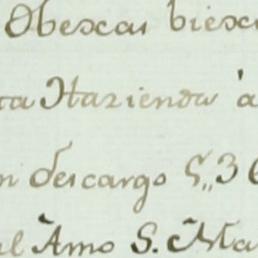 Obexas biexa
ta Hazienda a
n descargo S,, 36
al Amo S. Ma